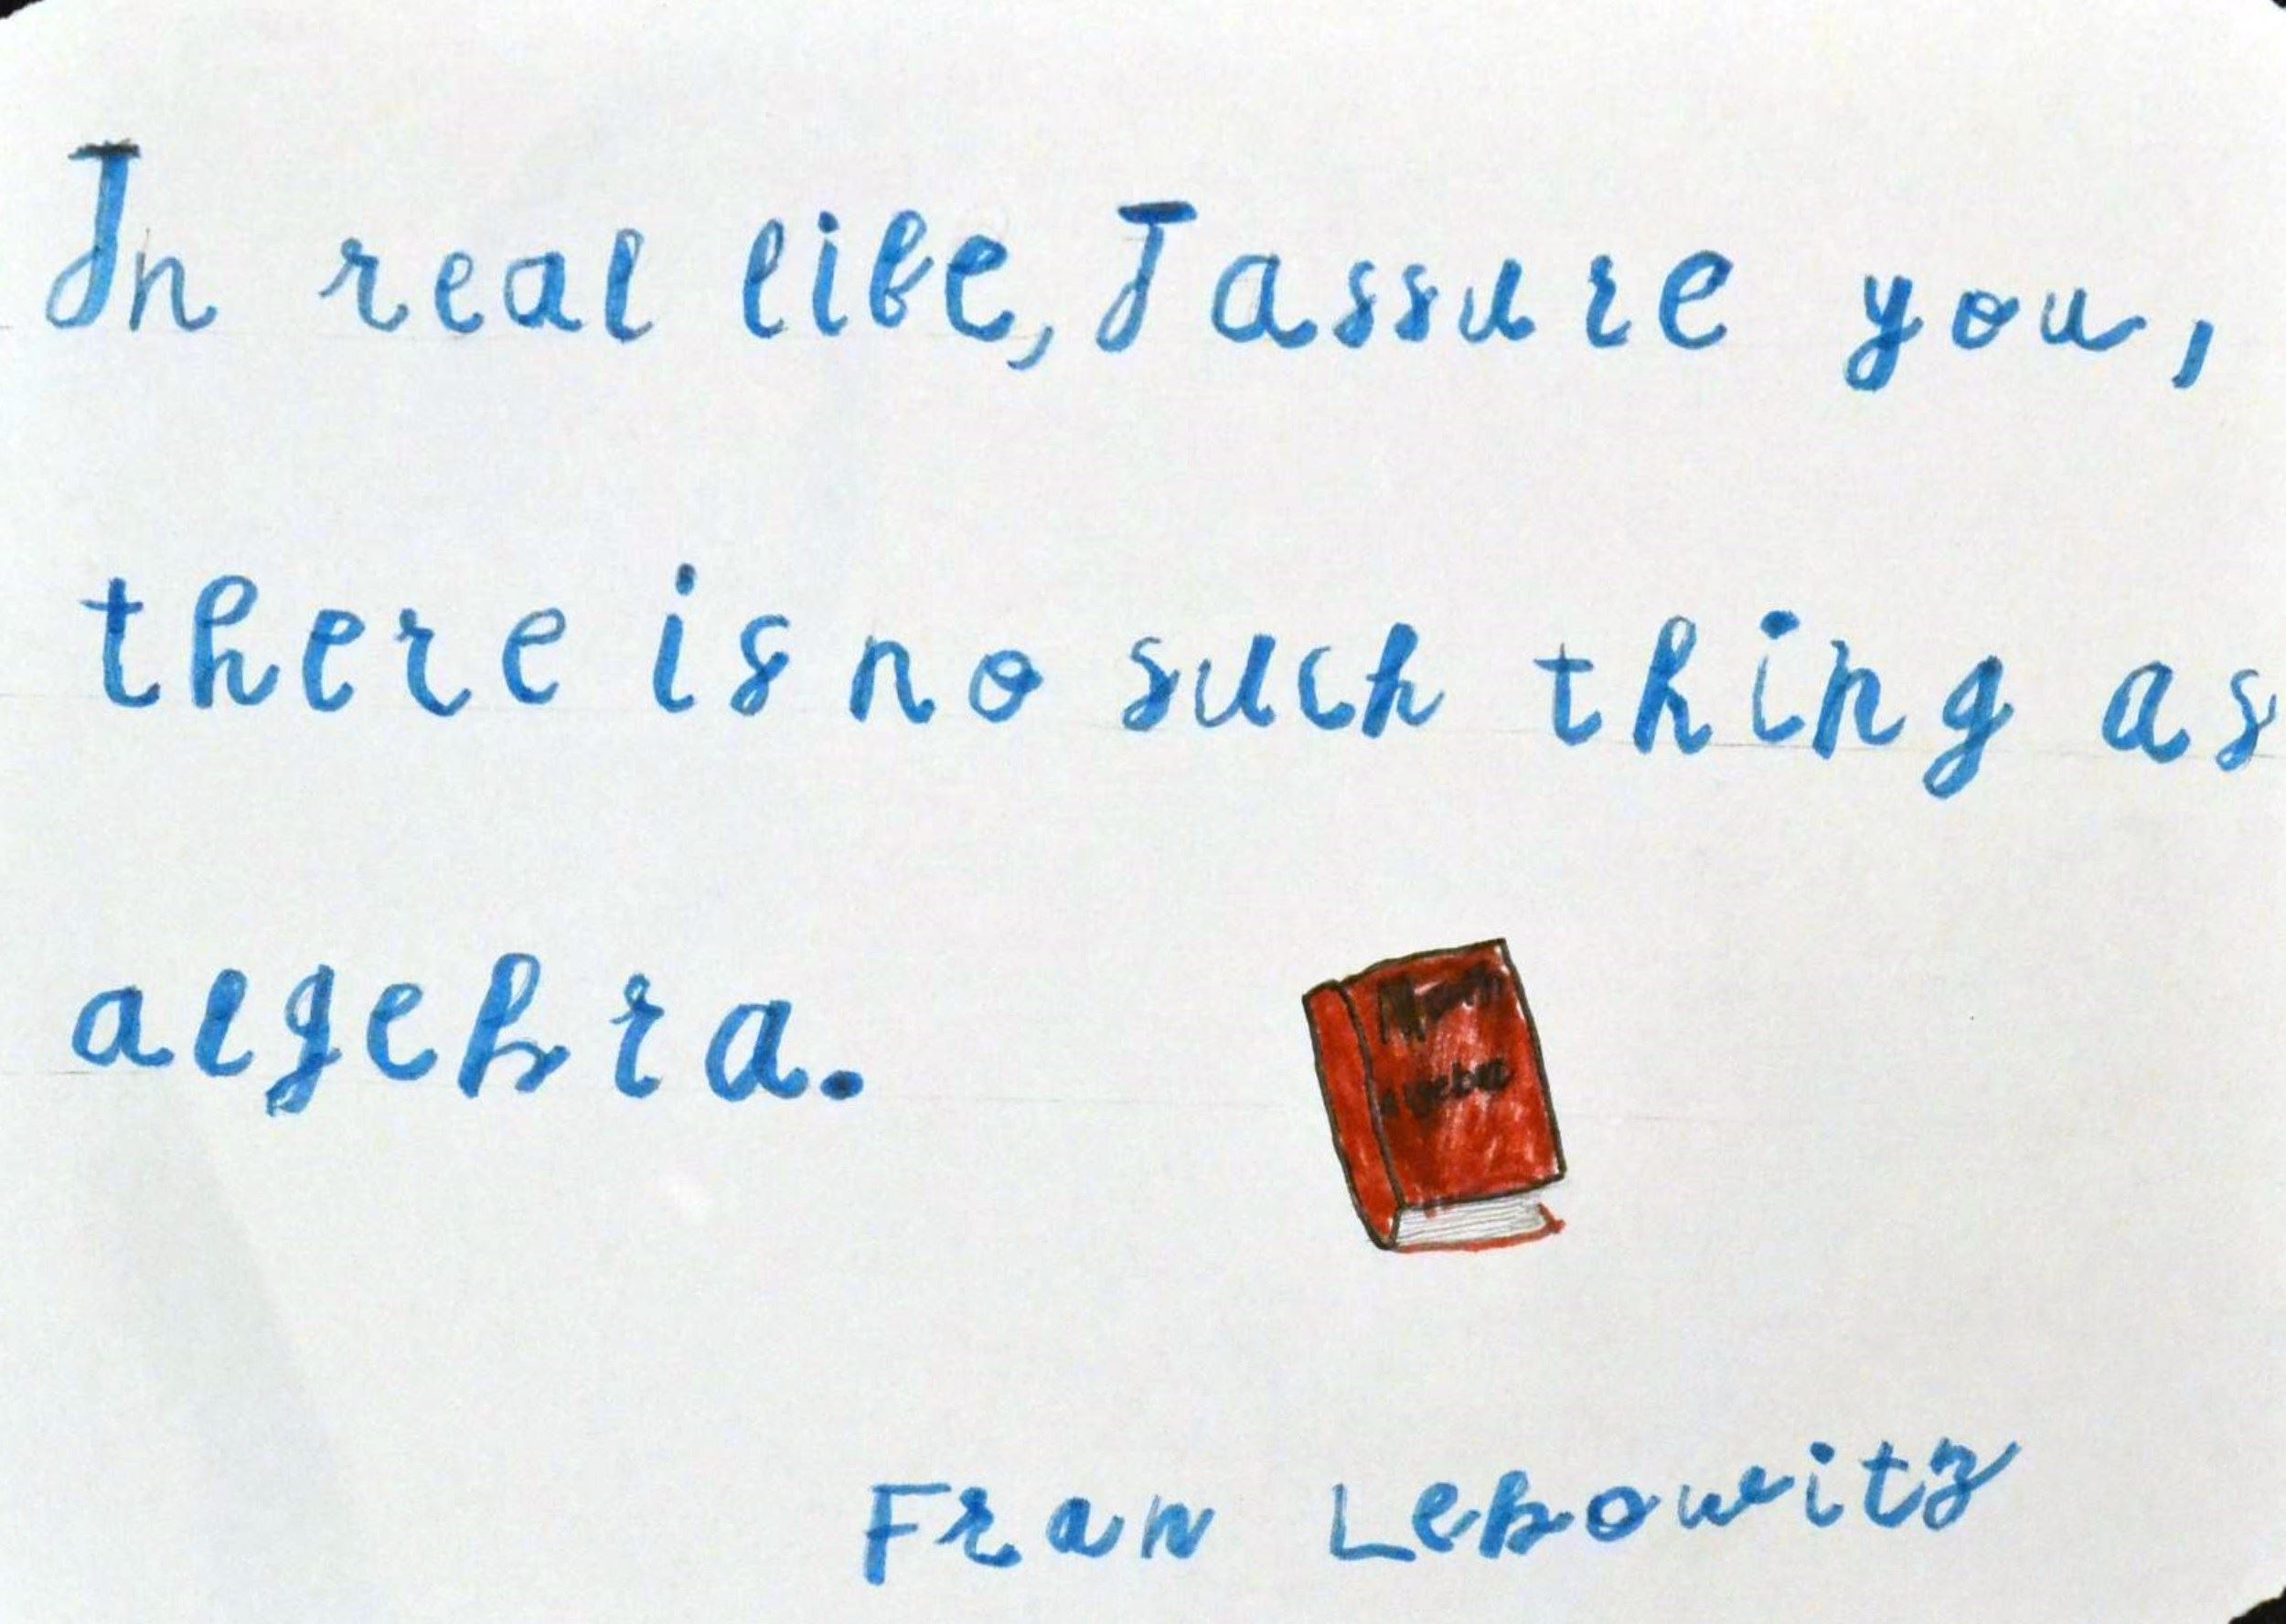 In real life, I assure you,
there is no such thing as
algebra.
Math
algebra
Fran Lebowitz